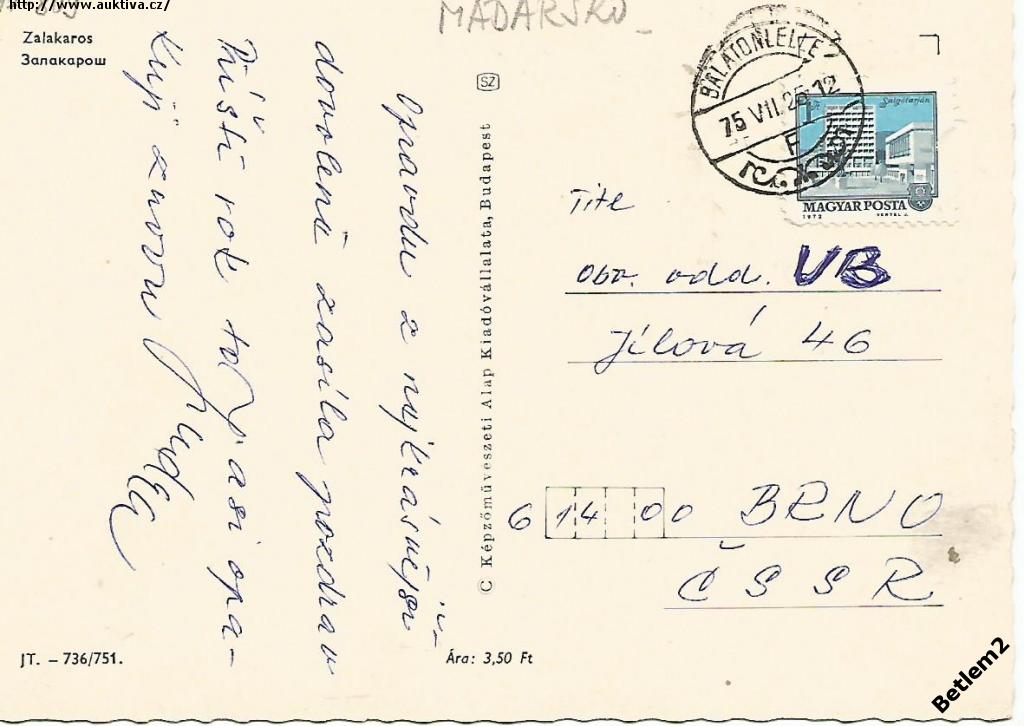 http://www.auktiva.cz/
MAĎARSKO
Zalakaros
Залакарош
Opravdu z nejkrásnější
dovolené zasílá pozdrav
Příští rok to asi opa-
kuji znovu
SZ
C Képzőművészeti Alap Kiadóvállalata, Budapest
BALATONLELLE
75 VII. 25. 12
F
1 Ft
Salgótarján
MAGYAR POSTA
1972
VERTEL J.
Obv. odd. VB
Jílová 46
614 00 BRNO
ČSSR
JT. – 736/751.
Ára: 3,50 Ft
Betlem2